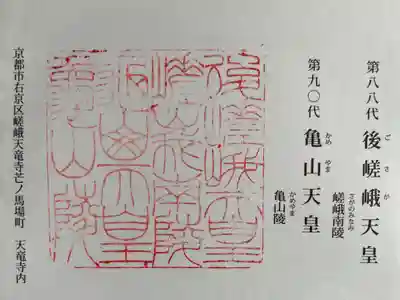 第八八代 後嵯峨天皇
ごさが
嵯峨南陵
さがのみなみ
第九〇代 亀山天皇
かめやま
亀山陵
かめやま
後嵯峨天皇
嵯峨南陵
亀山天皇
亀山陵
京都市右京区嵯峨天竜寺芒ノ馬場町 天竜寺内